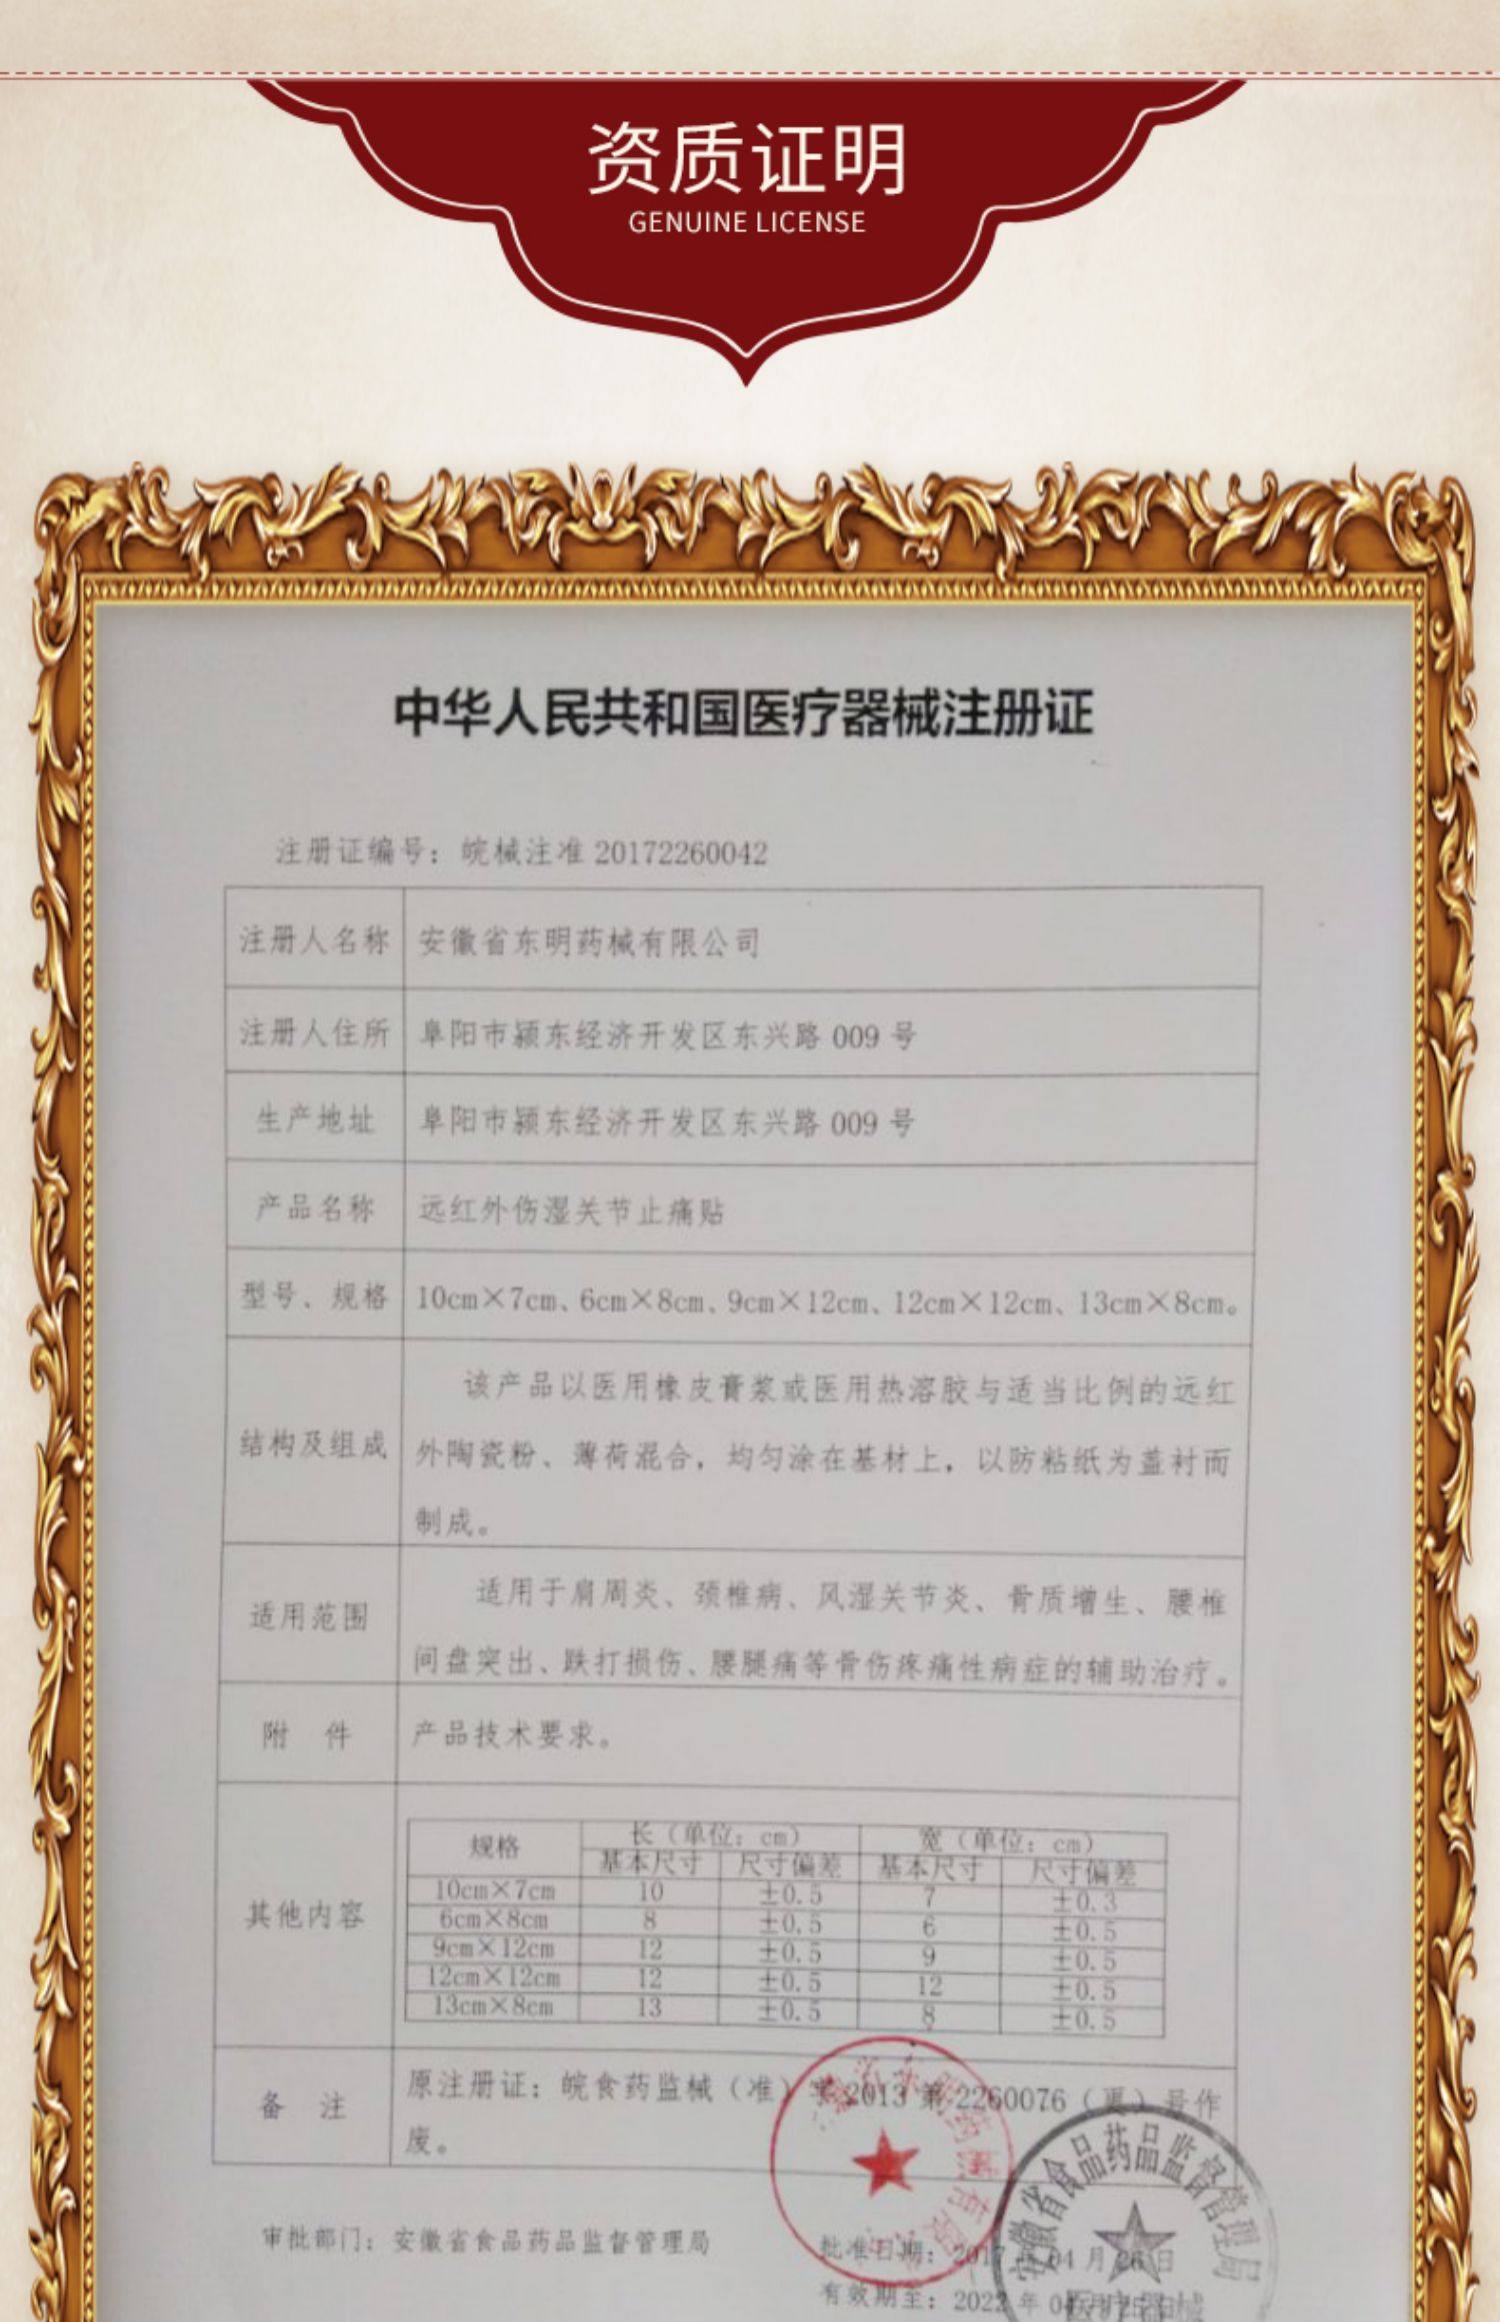 资质证明
GENUINE LICENSE
中华人民共和国医疗器械注册证
注册证编号：皖械注准 20172260042
注册人名称 安徽省东明药械有限公司
注册人住所 阜阳市颍东经济开发区东兴路 009 号
生产地址 阜阳市颍东经济开发区东兴路 009 号
产品名称 远红外伤湿关节止痛贴
型号、规格 10cm×7cm、6cm×8cm、9cm×12cm、12cm×12cm、13cm×8cm。
结构及组成 该产品以医用橡皮膏浆或医用热溶胶与适当比例的远红
外陶瓷粉、薄荷混合，均匀涂在基材上，以防粘纸为盖衬而
制成。
适用范围 适用于肩周炎、颈椎病、风湿关节炎、骨质增生、腰椎
间盘突出、跌打损伤、腰腿痛等骨伤疼痛性病症的辅助治疗。
附 件 产品技术要求。
其他内容
规格 长（单位：cm） 宽（单位：cm）
基本尺寸 尺寸偏差 基本尺寸 尺寸偏差
10cm×7cm 10 ±0.5 7 ±0.3
6cm×8cm 8 ±0.5 6 ±0.5
9cm×12cm 12 ±0.5 9 ±0.5
12cm×12cm 12 ±0.5 12 ±0.5
13cm×8cm 13 ±0.5 8 ±0.5
备 注 原注册证：皖食药监械（准）字 2013 第 2260076（更）号作
废。
审批部门：安徽省食品药品监督管理局
批准日期：2017 年 04 月 26 日
有效期至：2022 年 04 月
安徽省食品药品监督管理局
医疗器械